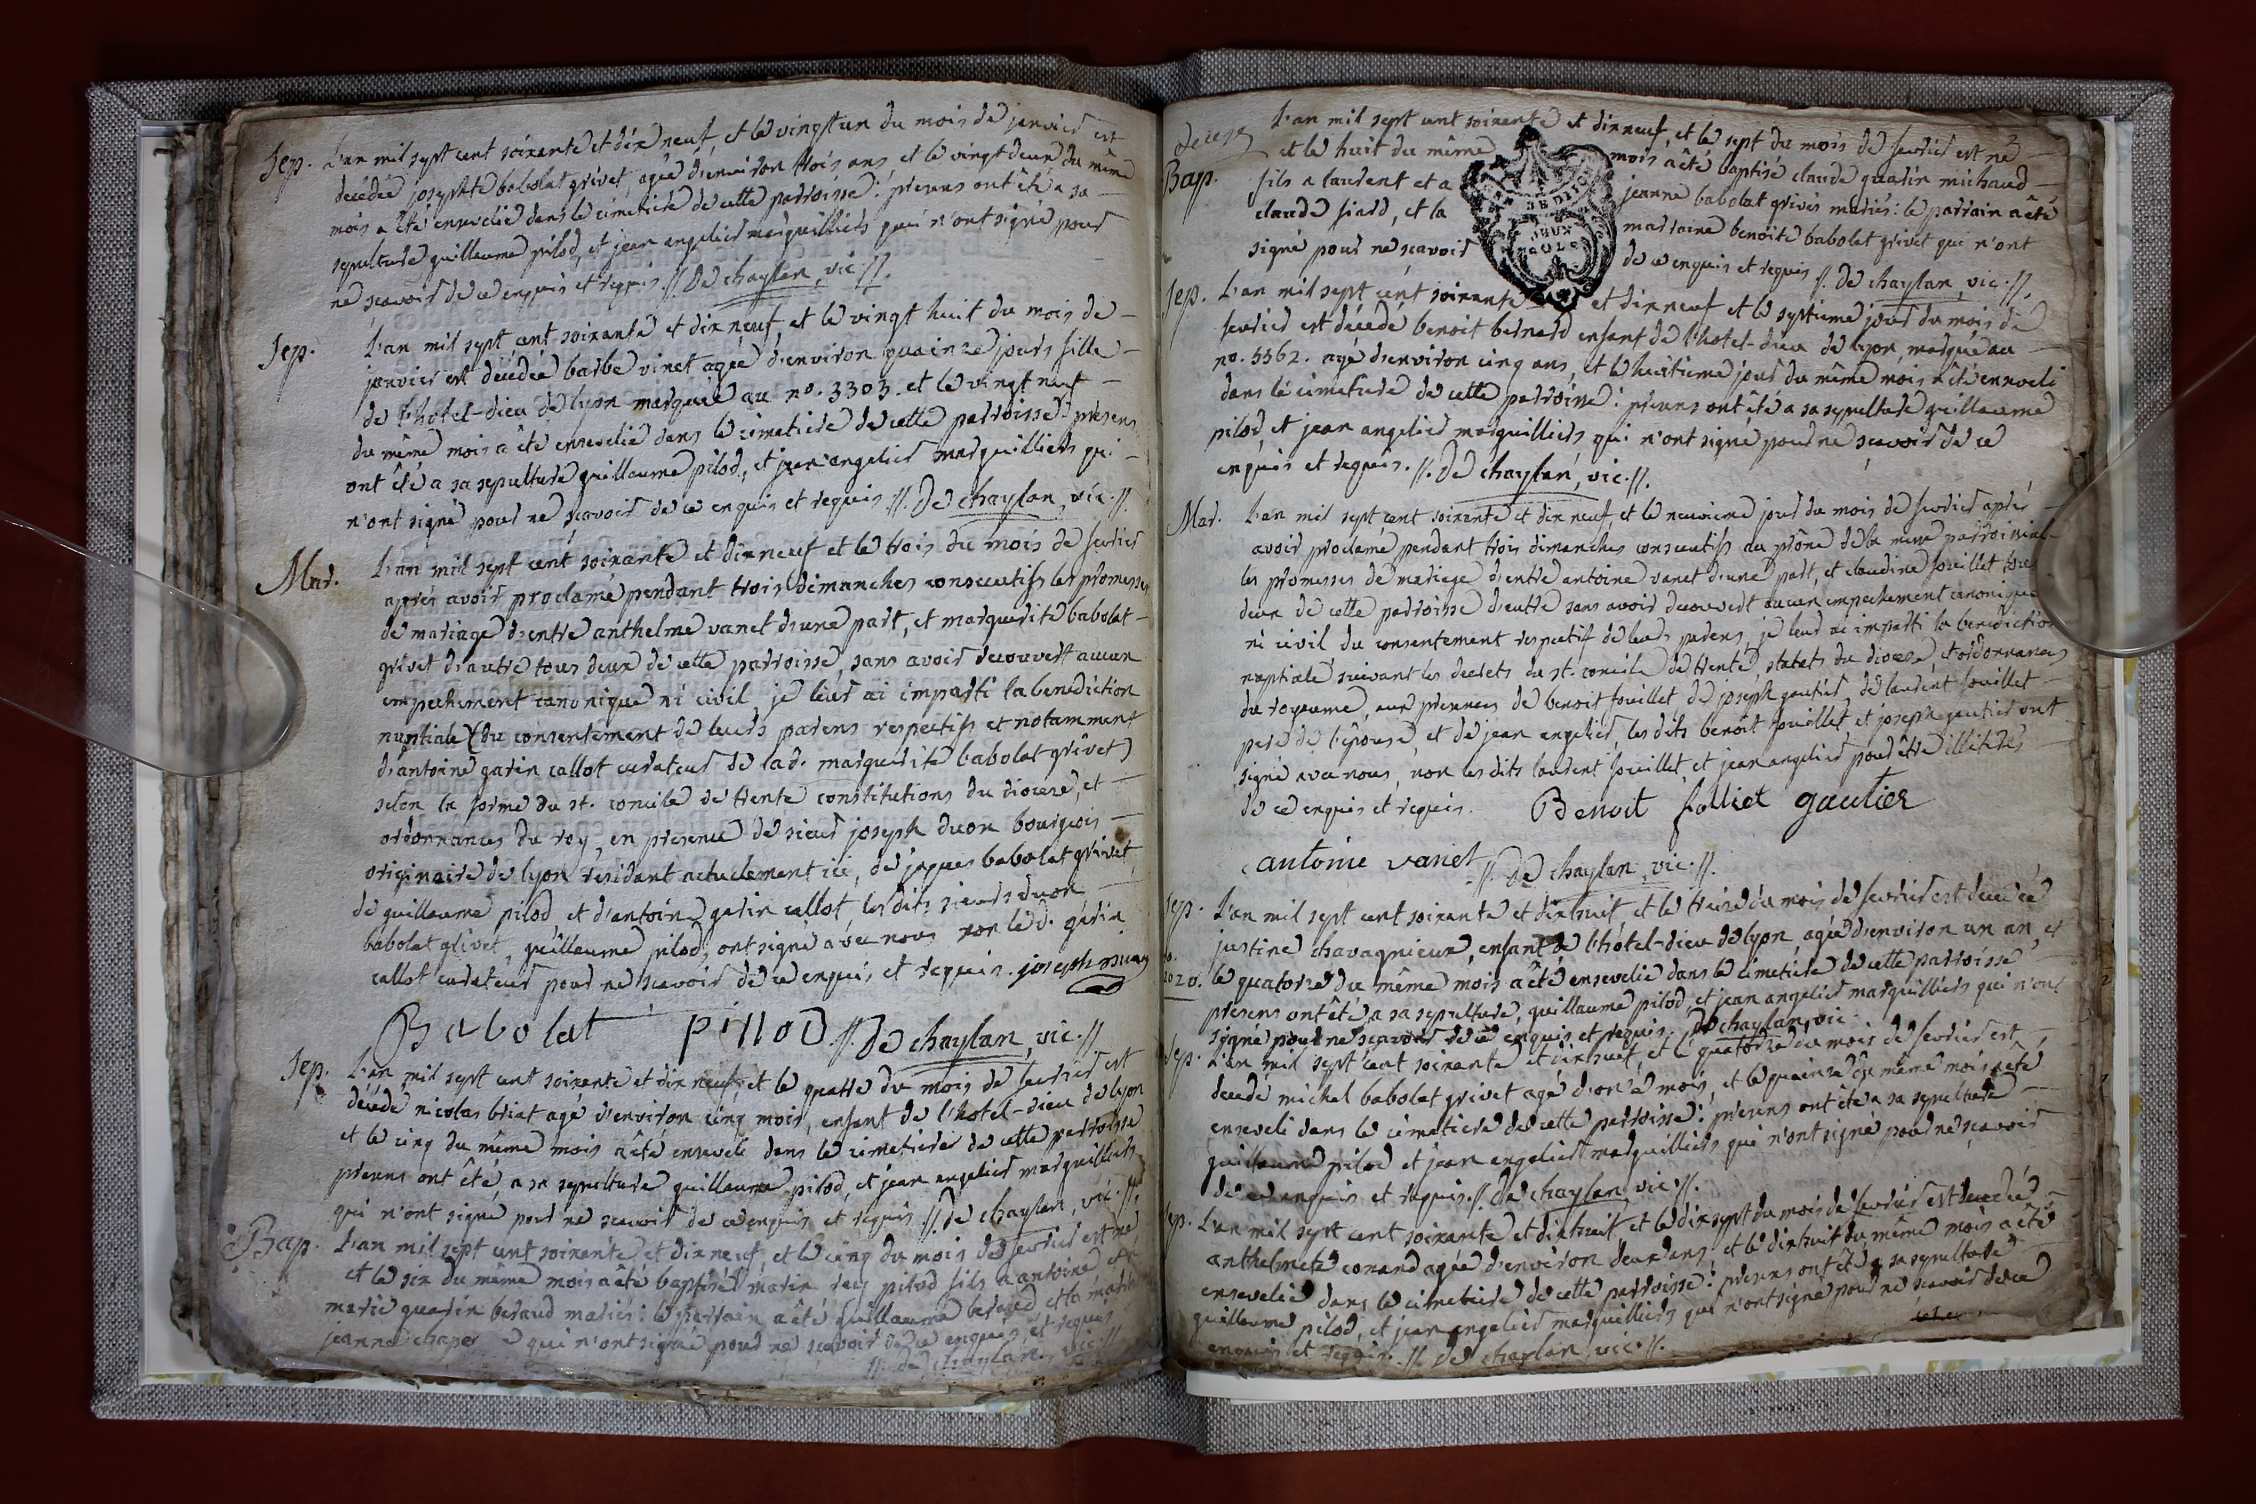 Sep. L'an mil sept cent soixante et dix neuf, et le vingt un du mois de janvier est
décédée josephte babolat grivet, agée d'environ trois ans et le vingt deux du même
mois a été ensevelie dans le cimetiere de cette parroisse: presens ont été a sa
sepulture guillaume pilod, et jean angelier marguilliers qui n'ont signé pour
ne sçavoir de ce enquis et requis //. De chaylan, vic. //.
Sep. L'an mil sept cent soixante et dix neuf, et le vingt huit du mois de
janvier est décédée barbe vinet agée d'environ quainze jours fille
de l'hotel-dieu de lyon marquée au no. 3303. et le vingt neuf
du même mois a été ensevelie dans le cimetiere de cette parroisse: presens
ont été a sa sepulture guillaume pilod, et jean angelier marguilliers qui
n'ont signé pour ne sçavoir de ce enquis et requis //. De chaylan, vic. //.
Mar. L'an mil sept cent soixante et dix neuf et le trois du mois de fevrier
après avoir proclamé pendant trois dimanches consecutifs les promesses
de mariage d'entre anthelme vanet d'une part, et marguerite babolat
grivet d'autre tous deux de cette parroisse, sans avoir decouvert aucun
empechement canonique ni civil, je leur ai imparti la benediction
nuptiale (du consentement de leurs parens respectifs et notamment
d'antoine garin callot curateur de lad. marguerite babolat grivet)
selon la forme du st. concile de trente constitutions du diocese, et
ordonnances du roy, en presence de sieur joseph duon bourgeois
originaire de lyon residant actuelement ici, de jaques babolat grivet
de guillaume pilod et d'antoine garin callot, les dits sieurs duon
babolat grivet, guillaume pilod, ont signé avec nous non le d. garin
callot curateur pour ne sçavoir de ce enquis et requis. joseph duon
Babolat pillod //. De chaylan, vic. //
Sep. L'an mil sept cent soixante et dix neuf, et le quatre du mois de fevrier est
décédé nicolas briat agé d'environ cinq mois, enfant de l'hotel-dieu de lyon
et le cinq du même mois a été enseveli dans le cimetiere de cette parroisse
presens ont été a sa sepulture guillaume pilod, et jean angelier marguilliers
qui n'ont signé pour ne sçavoir de ce enquis et requis //. De chaylan, vic. //.
Bap. L'an mil sept cent soixante et dix neuf, et le cinq du mois de fevrier est né
et le six du même mois a été baptisé marin pilod fils a antoine et a
marie guarin beraud mariés: le parrain a été guillaume beraud et la marraine
jeanne qui n'ont signé pour ne sçavoir de ce enquis et requis
//. De chaylan, vic. //.
L'an mil sept cent soixante et dix neuf, et le sept du mois de fevrier est né
et le huit du même mois a été baptisé claude guarin michaud
Bap. fils a laurent et a jeanne babolat grivet mariés: le parrain a été
claude siard, et la marraine benoite babolat grivet qui n'ont
signé pour ne sçavoir de ce enquis et requis //. De chaylan, vic. //.
Sep. L'an mil sept cent soixante et dix neuf et le septieme jour du mois de
fevrier est décédé benoit bernard enfant de l'hotel-dieu de lyon, marqué au
no. 3362. agé d'environ cinq ans, et le huitieme jour du même mois a été enseveli
dans le cimetiere de cette parroisse: presens ont été a sa sepulture guillaume
pilod, et jean angelier marguilliers qui n'ont signé pour ne sçavoir de ce
enquis et requis. //. De chaylan, vic. //.
Mar. L'an mil sept cent soixante et dix neuf, et le neuvieme jour du mois de fevrier après
avoir proclamé pendant trois dimanches consecutifs au prône de la messe parroissial
les promesses de mariage d'entre antoine vanet d'une part, et claudine fouillet tous
deux de cette parroisse d'autre sans avoir decouvert aucun empechement canonique
ni civil du consentement respectif de leurs parens, je leur ai imparti la benediction
nuptiale suivant les decrets du st. concile de trente, statuts du diocese, et ordonnances
du royaume, aux presences de benoit fouillet de joseph gautier de laurent fouillet
pere de l'epouse, et de jean angelier, les dits benoit fouillet, et joseph gautier ont
signé avec nous, non les dits laurent fouillet, et jean angelier pour être illitérés
de ce enquis et requis. Benoit folliet gautier
antoine vanet //. De chaylan, vic. //.
Sep. L'an mil sept cent soixante et dix huit et le treize du mois de fevrier est décédée
justine chavagnieux, enfant de l'hôtel-dieu de lyon, agée d'environ un an, et
le quatorze du même mois a été ensevelie dans le cimetiere de cette parroisse
presens ont été, a sa sepulture, guillaume pilod, et jean angelier marguilliers qui n'ont
signé pour ne sçavoir de ce enquis et requis. De chaylan, vic.
Sep. L'an mil sept cent soixante et dix huit, et le quatorze du mois de fevrier est
decedé michel babolat grivet agé d'onze mois, et le quainze du même mois a été
enseveli dans le cimetiere de cette parroisse: presens ont été a sa sepulture
guillaume pilod et jean angelier marguilliers qui n'ont signé pour ne sçavoir
de ce enquis et requis. //. De chaylan, vic. //.
Sep. L'an mil sept cent soixante et dix huit, et le dix sept du mois de fevrier est decedée
anthelmete conand agée d'environ deux ans, et le dix huit du même mois a été
ensevelie dans le cimetiere de cette parroisse: presens ont été a sa sepulture
guillaume pilod, et jean angelier marguilliers qui n'ont signé pour ne sçavoir de ce
enquis et requis. //. De chaylan, vic. //.